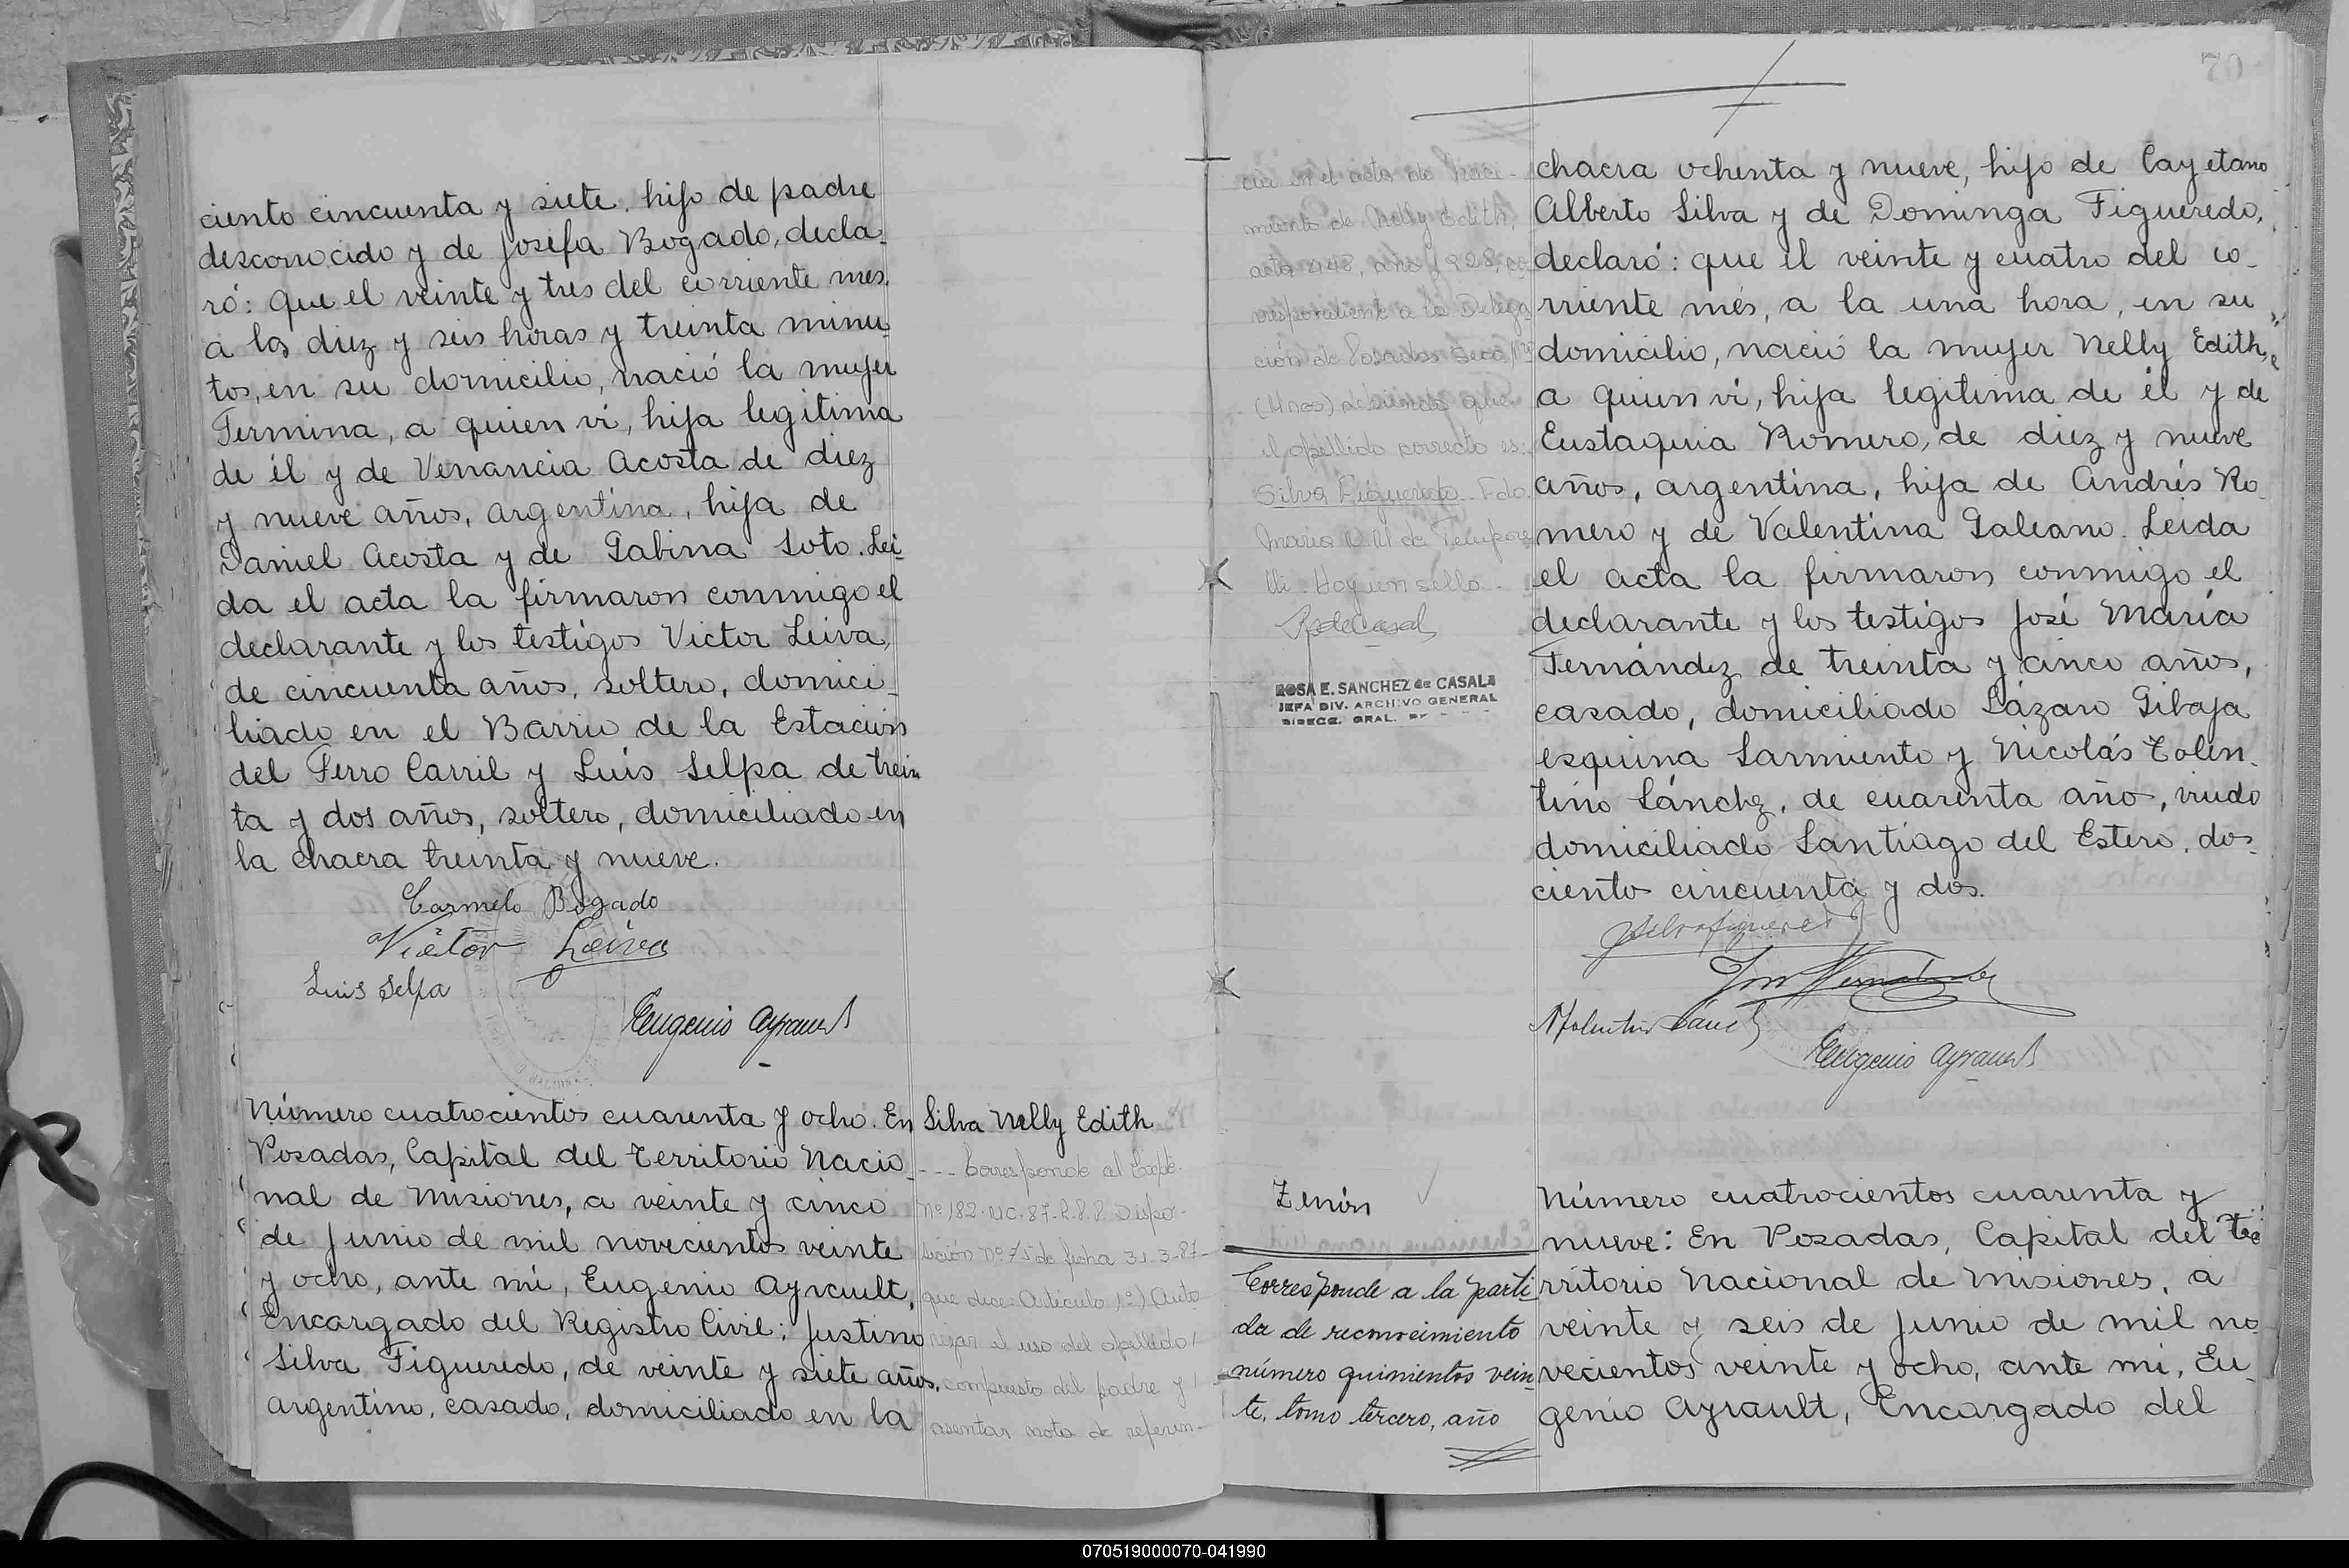 ciento cincuenta y siete, hijo de padre
desconocido y de Josefa Bogado, decla-
ró: Que el veinte y tres del corriente mes,
a las diez y seis horas y treinta minu-
tos, en su domicilio, nació la mujer
Fermina, a quien ví, hija legítima
de él y de Venancia Acosta de diez
y nueve años, argentina, hija de
Daniel Acosta y de Gabina Soto. Leí-
da el acta la firmaron conmigo el
declarante y los testigos Victor Leiva,
de cincuenta años, soltero, domici-
liado en el Barrio de la Estación
del Ferro Carril y Luis Selpa de trein
ta y dos años, soltero, domiciliado en
la chacra treinta y nueve.
Carmelo Bogado
Victor Leiva
Luis Selpa
Eugenio Ayrault
Número cuatrocientos cuarenta y ocho. En
Posadas, Capital del Territorio Nacio-
nal de Misiones, a veinte y cinco
de Junio de mil novecientos veinte
y ocho, ante mí, Eugenio Ayrault,
Encargado del Registro Civil; Justino
Silva Figueredo, de veinte y siete años,
argentino, casado, domiciliado en la
Silva Nelly Edith
--- Corresponde al Expte.
nº 182-UC-87-R.P.P. Dispo-
sición nº 75 de fecha 31-3-87-
que dice: Artículo 1º) Auto
rizar el uso del apellido/
compuesto del padre y/
asentar nota de referen-
70
cia en el acta de Naci-
miento de Nelly Edith,
acta 448, año 1928, co-
rrespondiente a la Delega
ción de Posadas Secc. 1º
(Unos) debiendo que
el apellido correcto es:
Silva Figueredo. Fdo.
María
lli. Hay un sello.-
R S de Casals
ROSA E. SANCHEZ de CASALS
JEFA DIV. ARCHIVO GENERAL
DIRECC. GRAL. DE
chacra ochenta y nueve, hijo de Cayetano
Alberto Silva y de Dominga Figueredo,
declaró: que el veinte y cuatro del co-
rriente més, a la una hora, en su
domicilio, nació la mujer Nelly Edith,
a quien ví, hija legítima de él y de
Eustaquia Romero, de diez y nueve
años, argentina, hija de Andrés Ro-
mero y de Valentina Galeano. Leída
el acta la firmaron conmigo el
declarante y los testigos José María
Fernández de treinta y cinco años,
casado, domiciliado Lázaro Gibaja
esquina Sarmiento y Nicolás Tolen-
tino Sánchez, de cuarenta año, viudo
domiciliado Santiago del Estero, dos-
ciento cincuenta y dos.
J Silva Figueredo
José M Fernández
N Tolentino Sánchez
Eugenio Ayrault
Zenón
Corresponde a la parti
da de reconocimiento
número quinientos vein
te, tomo tercero, año
Número cuatrocientos cuarenta y
nueve: En Posadas, Capital del Te-
rritorio Nacional de Misiones, a
veinte y seis de Junio de mil no-
vecientos veinte y ocho, ante mí, Eu-
genio Ayrault, Encargado del
070519000070-041990